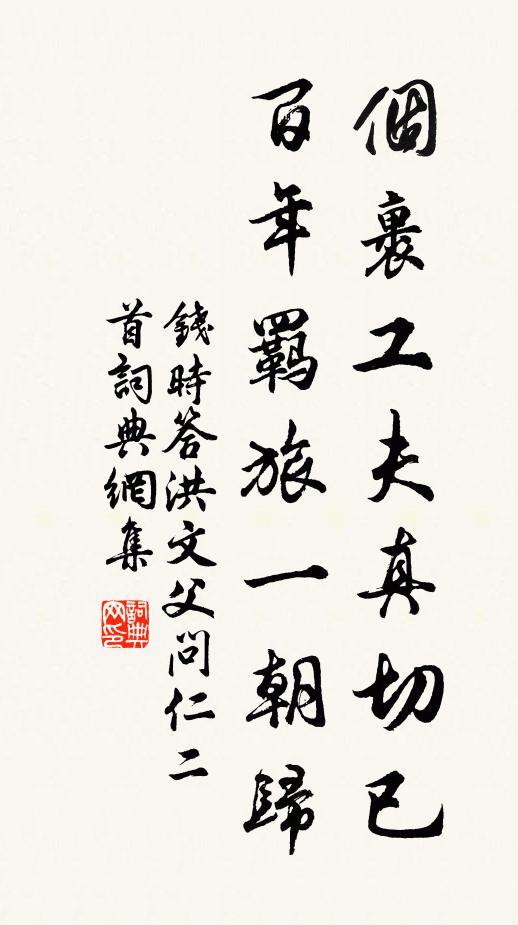 個裏工夫真切已
百年羈旅一朝歸
錢時答洪文父問仁二
首詞典網集
詞典網印